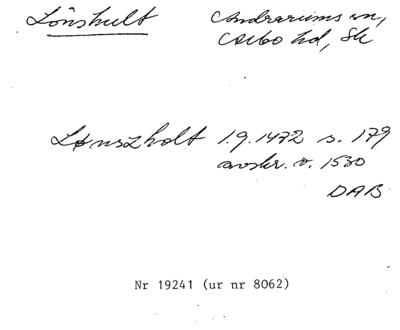 Lönshult Andrarums sn,
Albo hd, Sk
Lønszholt 1.9.1472 s. 179
avskr. o. 1530
DAB
Nr 19241 (ur nr 8062)